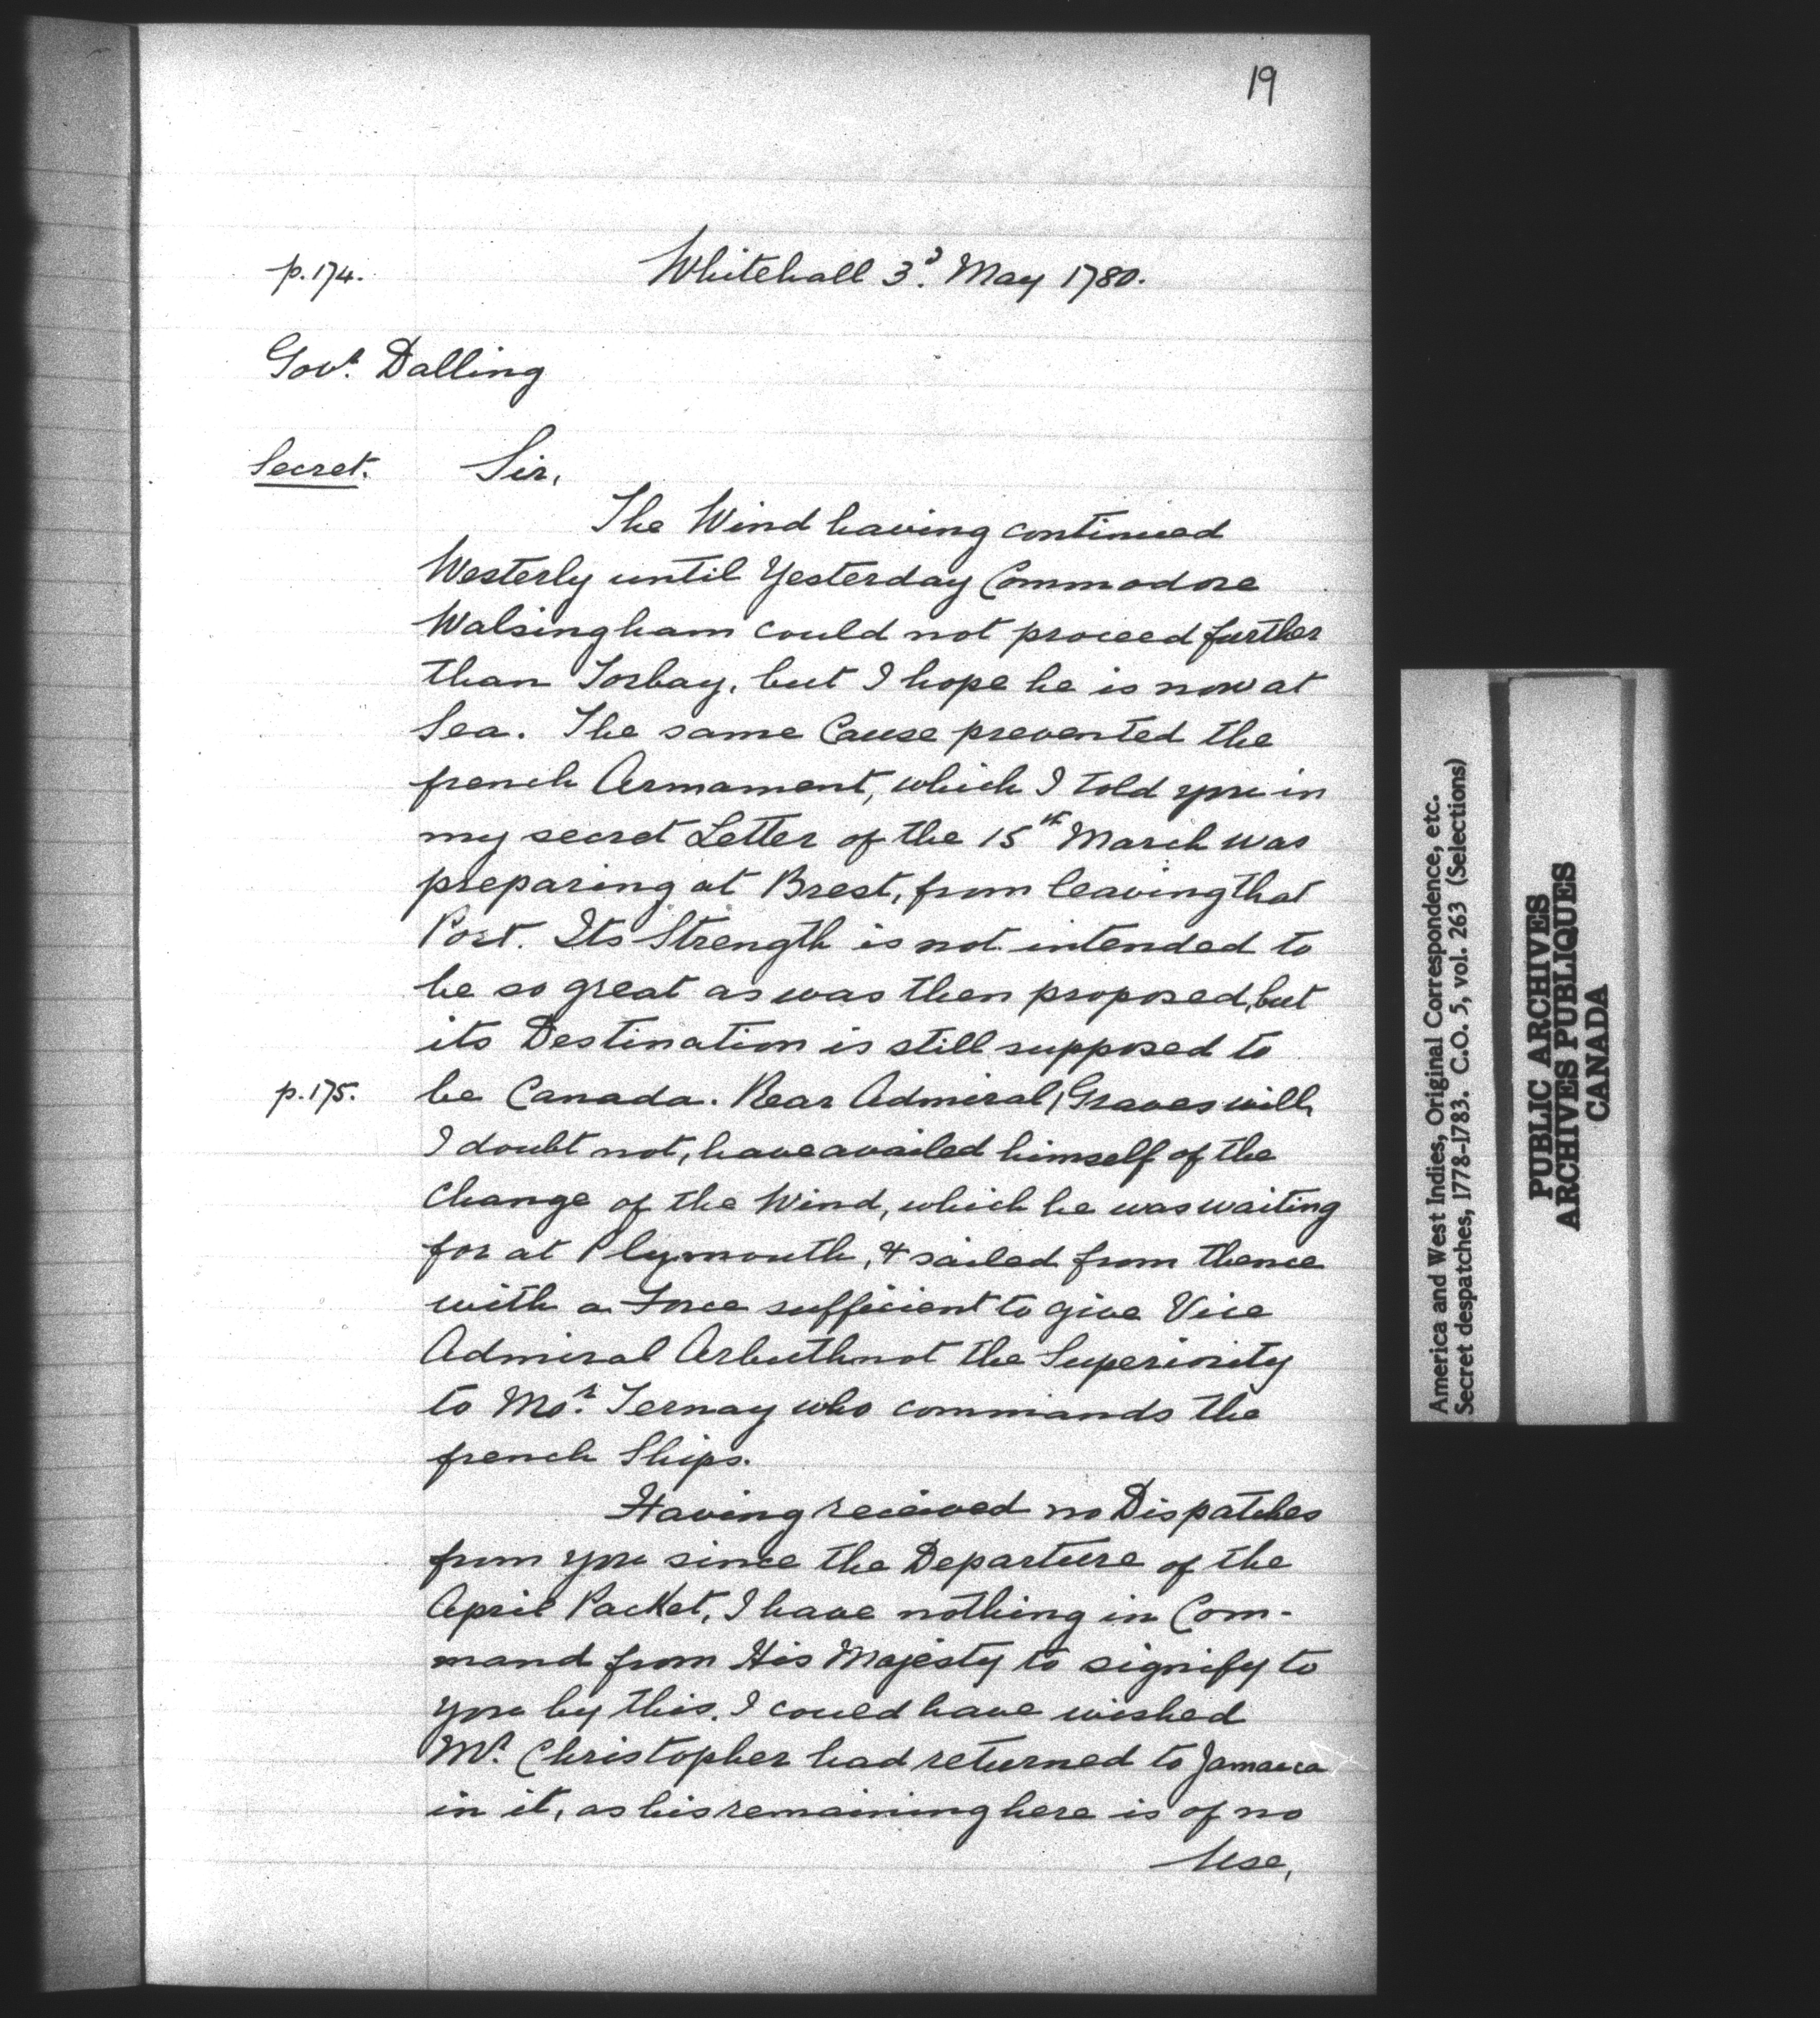 19
p.174. Whitehall 3d. May 1780.
Govr. Dalling
Secret. Sir,
The Wind having continued
Westerly until Yesterday Commodore
Walsingham could not proceed further
than Torbay, but I hope he is now at
Sea. The same Cause prevented the
french Armament, which I told you in
my secret Letter of the 15th March was
preparing at Brest, from leaving that
Port. Its Strength is not intended to
be so great as was then proposed, but
its Destination is still supposed to
p.175. be Canada. Rear Admiral Graves will,
I doubt not, have availed himself of the
Change of the Wind, which he was waiting
for at Plymouth, & sailed from thence
with a Force sufficient to give Vice
Admiral Arbuthnot the Superiority
to Mor. Ternay who commands the
french Ships.
Having recieved no Dispatches
from you since the Departure of the
April Packet, I have nothing in Com-
mand from His Majesty to signify to
you by this. I could have wished
Mr. Christopher had returned to Jamaica
in it, as his remaining here is of no
Use,
America and West Indies, Original Correspondence, etc.
Secret despatches, 1778-1783. C.O. 5, vol. 263 (Selections)
PUBLIC ARCHIVES
ARCHIVES PUBLIQUES
CANADA